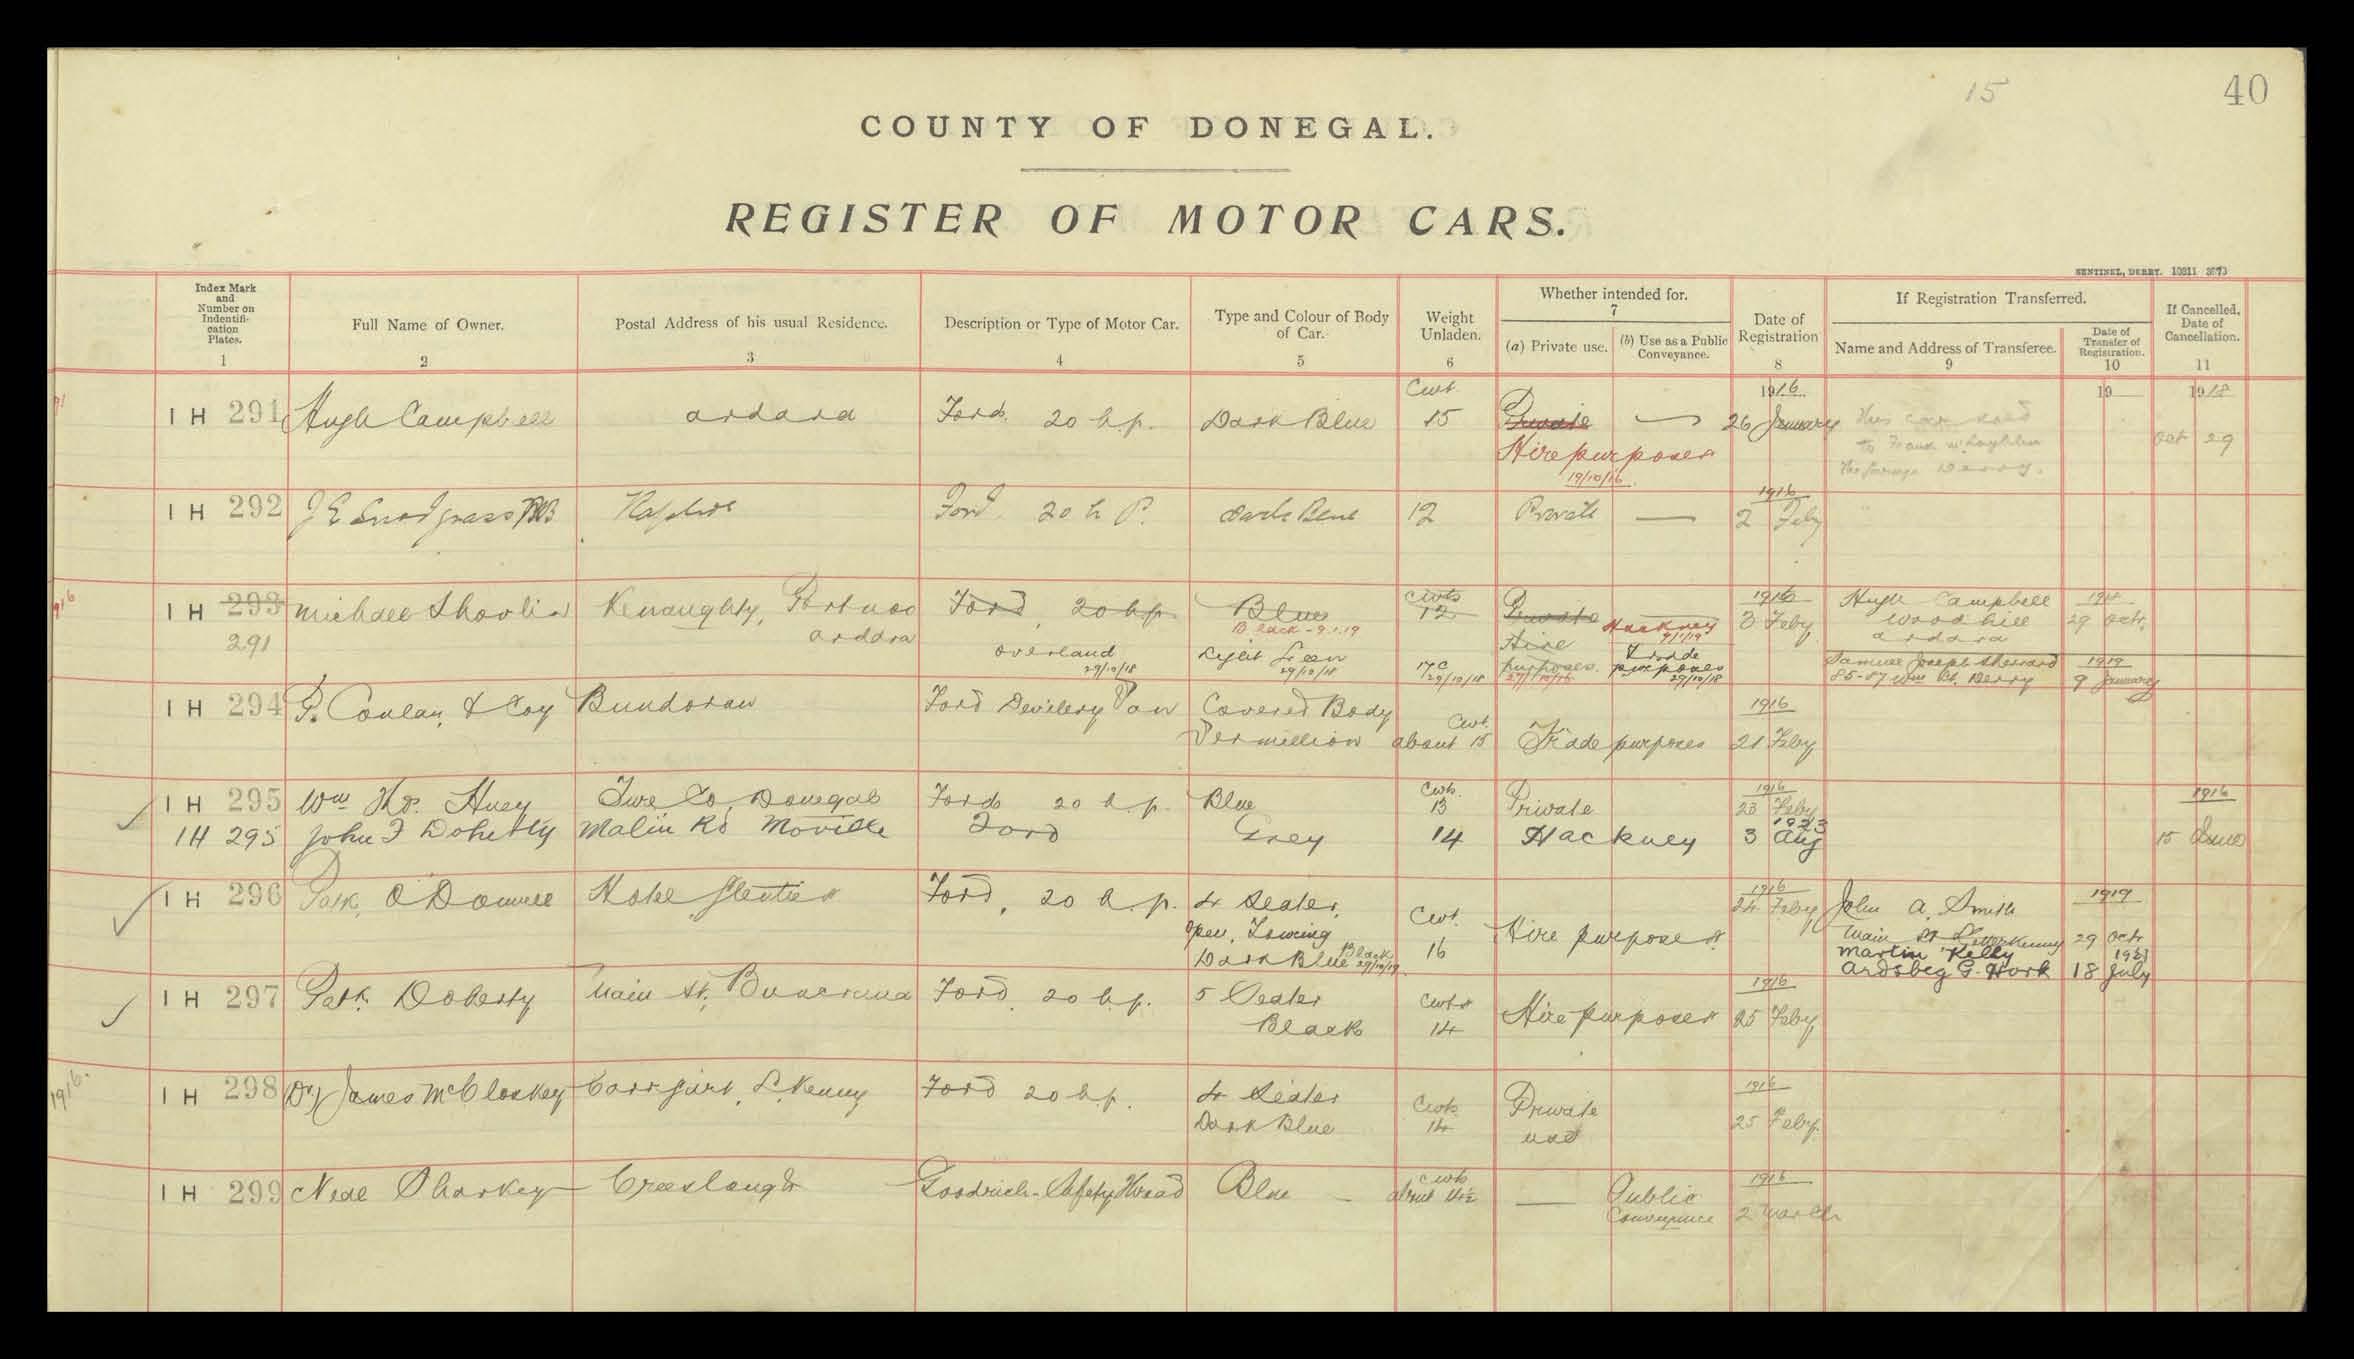 15
40
COUNTY OF DONEGAL.
REGISTER OF MOTOR CARS.
SENTINEL, DERRY. 10811 3673
Index Mark and Number on Indentifi-cation Plates.
1
Full Name of Owner.
2
Postal Address of his usual Residence.
3
Description or Type of Motor Car.
4
Type and Colour of Body of Car.
5
Weight Unladen.
6
Whether intended for.
7
(a) Private use.
(b) Use as a Public Conveyance.
Date of Registration
8
If Registration Transferred.
Name and Address of Transferee.
9
Date of Transfer of Registration.
10
If Cancelled, Date of Cancellation.
11
Cwt. 1916 19 1918
IH 291 Hugh Campbell Ardara Ford. 20 h.p. Dark Blue 15 Private — 26 January This car sold
to Frank McLaughlin Oct 29
Hire purposes
The Garage Derry.
19/10/16
1916
IH 292 J E Snodgrass MB Ford 20 h P. Dark Blue 12 Private — 2 Feby
cwts 1916 Hugh Campbell
IH 293 Michael Shovlin Portnoo Ford, 20 h.p. Blue 12 Private — 3 Feby Woodhill 29 Oct.
Black - 9.1.19 Hackney 9/1/19
291 Ardara Overland Light Green Hire Trade Ardara
29/10/18 29/10/18 17 c 29/10/18 purposes. 27/10/16 purposes 29/10/18
Samuel Joseph Sherrard 1919
85-87 Wm St. Derry 9 January
IH 294 P. Conlan & Coy Bundoran Ford Delivery Van Covered Body 1916
Cwt.
Vermillion about 15 Trade purposes 21 Feby
Cwts. 1916 1916
IH 295 Wm Thos. Huey Co Donegal Ford 20 h.p. Blue 13 Private 23 Feby
1923
IH 295 John F Doherty Malin Rd Moville Ford Grey 14 Hackney 3 Aug 15 June
IH 296 Patk. O'Donnell Hotel Glenties Ford, 20 h.p. 4 Seater, 1916 24 Feby John A. Smith 1919
Open, Touring Cwt. Hire purposes Main St Letterkenny 29 Oct
Dark Blue Black 29/10/19 16 Martin Kelly 1921
Ardsbeg G. Hork 18 July
1916
IH 297 Patk. Doherty Main St, Buncrana Ford 20 h.p. 5 Seater Cwts Hire purposes 25 Feby
Black 14
1916.
IH 298 (Dr) James McCloskey Carrigart, L.Kenny Ford 20 h.p. 4 Seater Cwts Private 1916
Dark Blue 14 use 25 Feby.
cwts 1916
IH 299 Neal Sharkey Creeslough Goodrich-Safety Thread Blue — about — Public
Conveyance 2 March